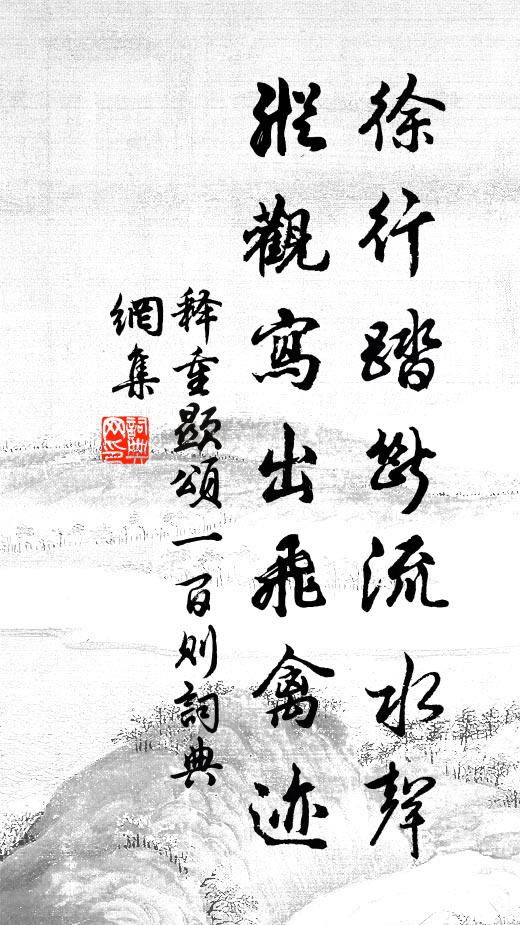 徐行踏斷流水聲
縱觀寫出飛禽迹
释重顯頌一百则詞典
網集
詞典網印